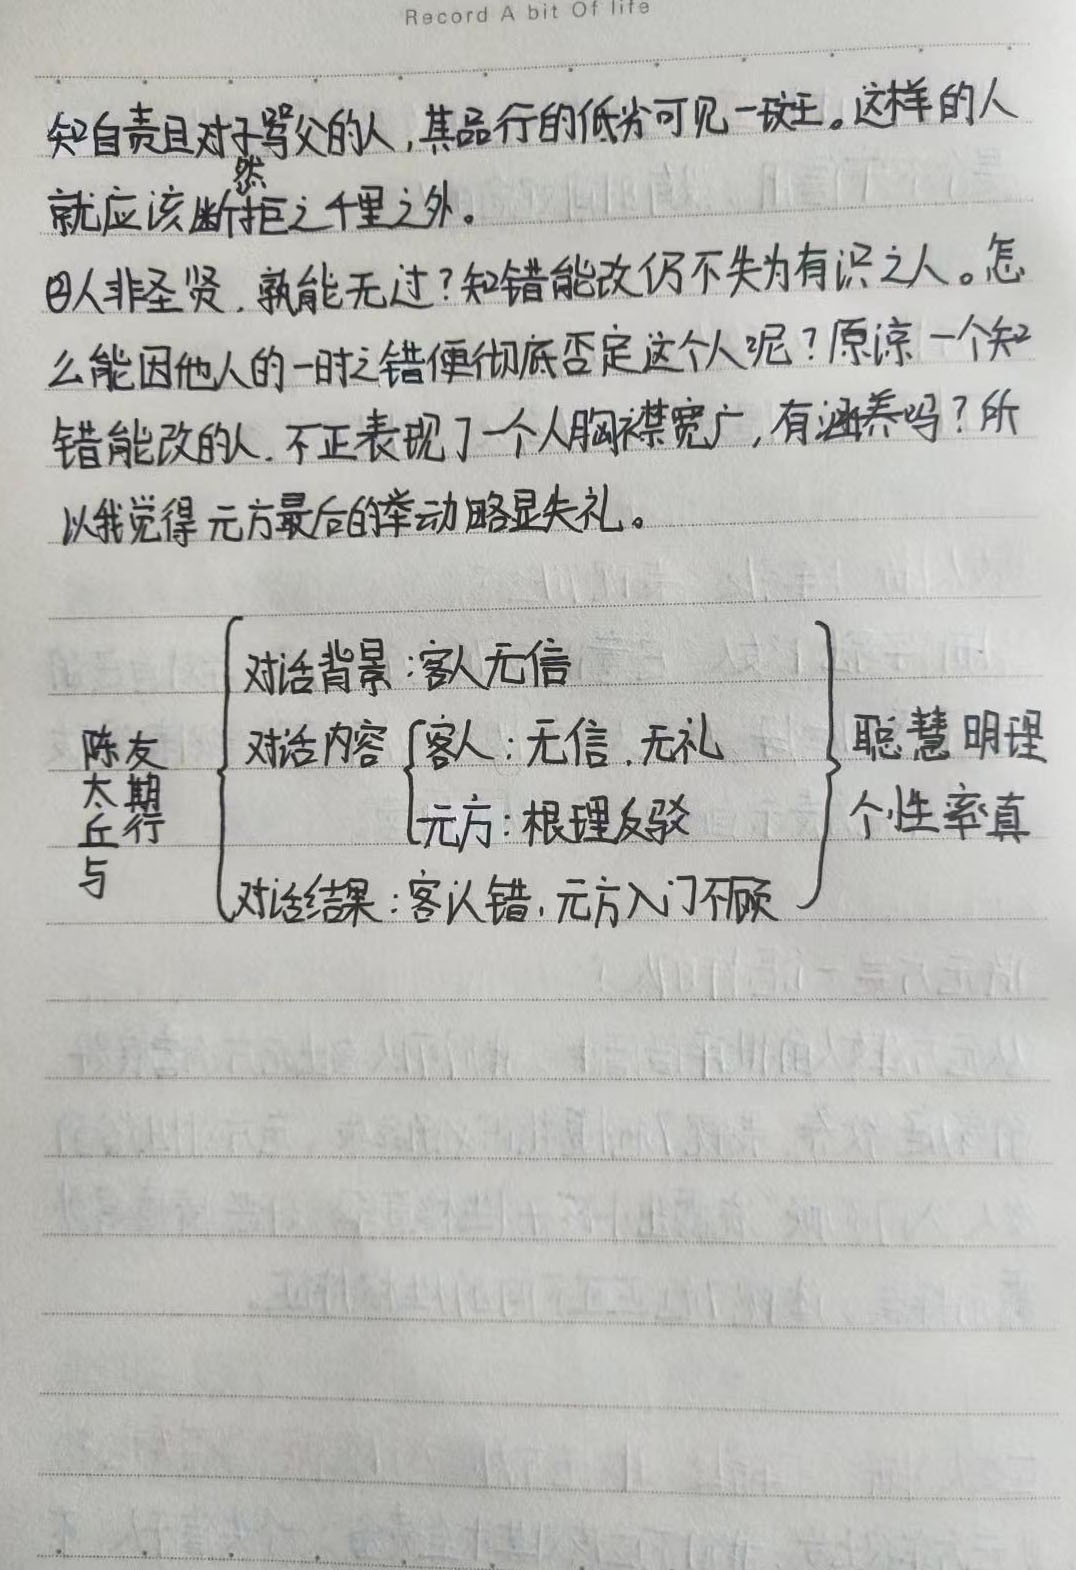 Record A bit Of life
知自责且对子骂父的人,其品行的低劣可见一斑。这样的人
就应该断然拒之千里之外。
②人非圣贤,孰能无过?知错能改仍不失为有识之人。怎
么能因他人的一时之错便彻底否定这个人呢?原谅一个知
错能改的人,不正表现了一个人胸襟宽广,有涵养吗?所
以我觉得元方最后的举动略显失礼。
陈太丘与友期行
对话背景:客人无信
对话内容
客人:无信、无礼
元方:根理反驳
对话结果:客认错,元方入门不顾
聪慧明理
个性率真